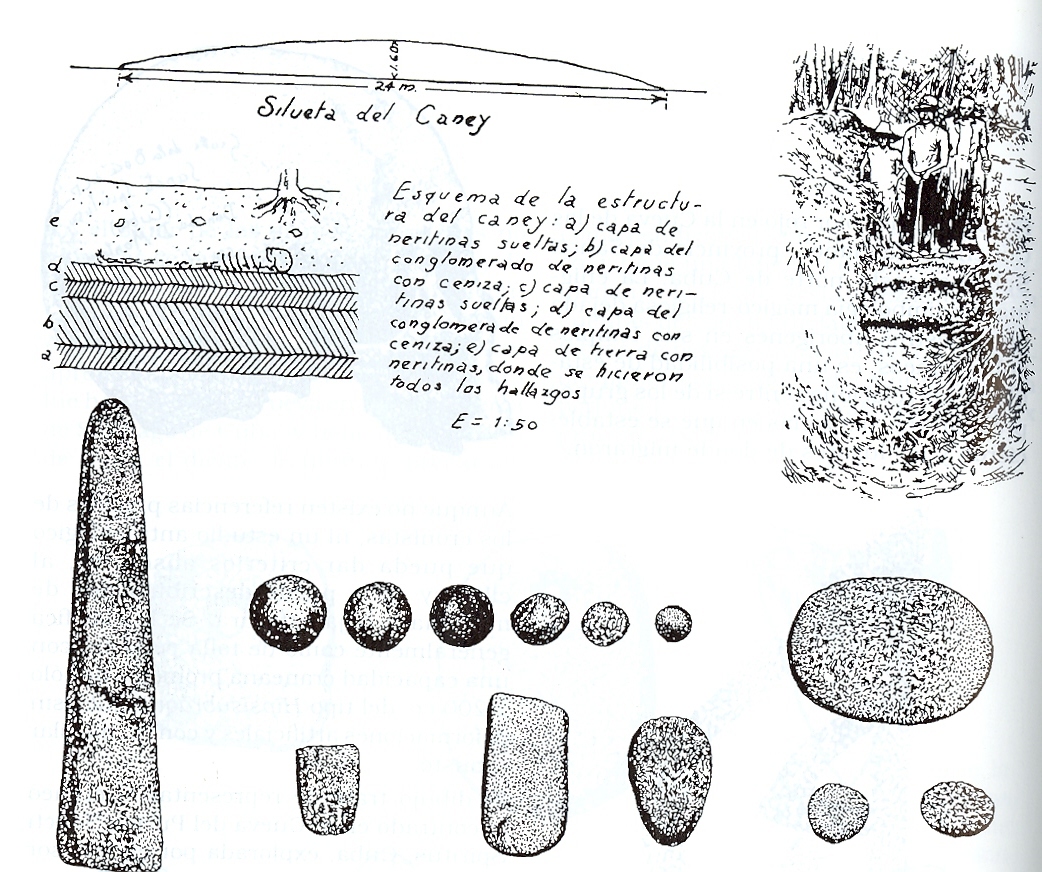 1.60
24 m.
Silueta del Caney
e
d
c
b
a
Esquema de la estructu-
ra del caney: a) capa de
neritinas sueltas; b) capa del
conglomerado de neritinas
con ceniza; c) capa de neri-
tinas sueltas; d) capa del
conglomerado de neritinas con
ceniza; e) capa de tierra con
neritinas, donde se hicieron
todos los hallazgos
E = 1:50